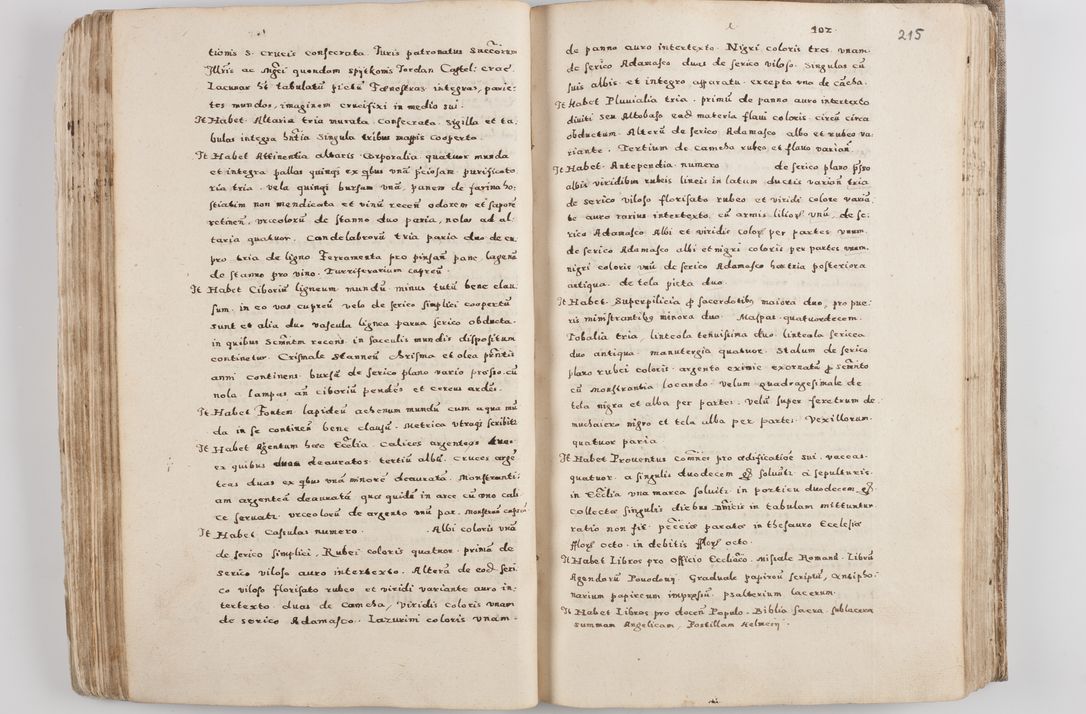 tionis S. Crucis consecrata. Iuris patronatus Succorum
Illris ac Mgci quondam Spytkonis Iordan Castel: crac.
Lacunar het tabulatū pictū Faenestras integras, parie-
tes mundos, imaginem crucifixi in medio sui.
It Habet Altaria tria murata. Consecrata. Sigilla et ta-
bulas integra hntia singula tribus mappis cooperta.
It Habet Attinentia altaris. Corporalia quatuor munda
et integra pallas quinqȝ ex qbus unā pciosam. purificato
ria tria. vela quinqȝ bursam unā. panem de farina ho-
stiatim non mendicata et vinū recen odorem et sapore
retinen. urceolorū de stanno duo paria, nolas ad al-
taria quatuor. Candelabrorū tria paria duo de cu
pro tria de ligno Ferramenta pro pinsan pane. lagenā
de stanno pro vino. Turriferarium cupreū.
It Habet Ciborium ligneum mundū minus tutū bene clau
sum. in eo vas cupreū velo de serico simplici coopertū
sunt et alia duo vascula lignea parua serico obducta.
in quibus Scmntm recens in sacculis mundis dispositum
continetur. Crismale Stanneū Chrisma et olea pntis
anni continens bursā de serico plano vario prosso. cū
nola lampas an ciboriū pendes et cereus ardes.
It Habet Fontem lapideū achenum mundū cum aqua mū
da in se contines bene clausū. Metrica utroqȝ scribitr
It Habet Argentum haec Ecclia. Calices argenteos
ex quibus duos deauratos tertiū albū. Cruces argē
teas duas ex qbus unā minore deauratā. Monstranti-
am argenteā deauratā. qua quidē in arce cū uno cali
ce seruatr. urceolorū de argento unū par. Monstran cuprea
It Habet Casulas numero. Albi coloris unā
de serico simplici. Rubei coloris quatuor. primā de
serico viloso auro intertexto. Alterā de eod seri-
co viloso florisato rubeo et viridi variante auro in-
tertexto duas de Camcha, Viridis coloris unam
de serico Adamasco. Lazurini coloris unam.
102.
215
de panno auro intertexto. Nigri coloris tres unam
de serico Adamasco duas de serico viloso. Singulas cū
suis albis et integro apparatu. excepta uno de cācha.
It Habet Pluuialia tria. primū de panno auro intertexto
diuiti seu Altobasso ead materia flaui coloris. circū circa
obductum. Alterū de serico Adamasco albo et rubeo va
riante. Tertium de Camcha rubeo et flauo varian
It Habet. Antependia. numero de serico plano psso
albis viridibus rubeis lineis in latum ductis varian tria
de serico viloso florisato rubeo et viridi colore varia
te auro rarius intertexto. cū armis lilior unū, de se-
rico Adamasco Albi et viridis color per partes unum.
de serico Adamasco albi et nigri coloris per partes unum.
nigri coloris unū de serico Adamasco hostria posteriora
antiqua. de tela picta duo.
It Habet. Superpilicia p sacerdotibȝ maiora duo, pro pue-
ris ministrantibȝ minora duo. Mappas. quatuordecem.
Tobalia tria, linteola tenuissima duo. linteola sericea
duo antiqua. manutergia quatuor. Stalum de serico
plano rubei coloris. argento eximie exornatū p scmnto
cū monstrantia locando. Velum quadragesimale de
tela nigra et alba per partes. Velū super feretrum de
muchaiero nigro et tela alba per partes. Vexillorum.
quatuor paria.
It Habet Prouentus comnes pro aedificatiōe sui. vaccas
quatuor. a singulis duodecem gr. soluūtr a sepulturis.
in Ecclia una marca soluitr. in porticu duodecem gr.
Collectae singulis diebus Dnicis in tabulam mittuntur.
ratio non fit. pecciae parata in thesauro Ecclesiae
fflor octo. in debitis fflor octo.
It Habet Libros pro officio Ecclico. Missale Romanū. Librū
Agendorū Pouodouȝ. Graduale papireū scriptū, Antipho-
narium papireum impressū. psalterium lacerum.
It Habet Libros pro docen Populo. Biblia sacra. sublacera
summam Angelicam, Postillam Helmesij.